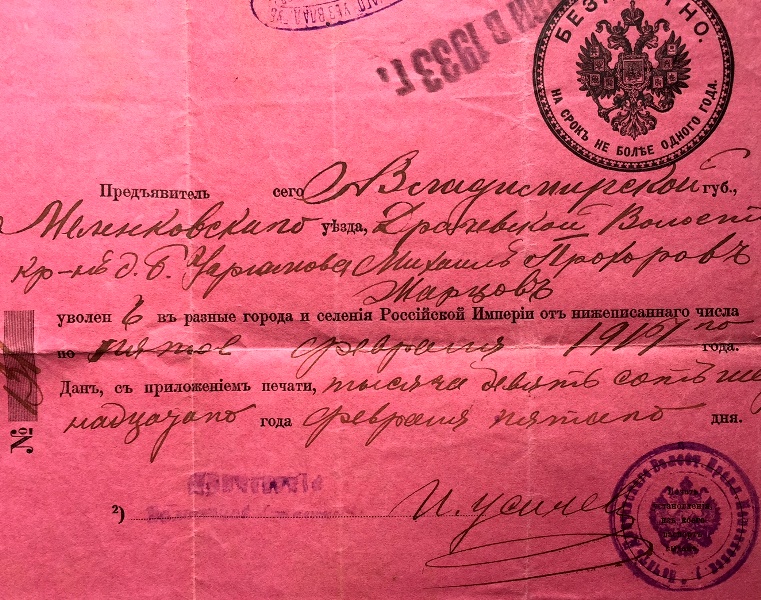 БЕЗПЛАТНО.
НА СРОКЪ НЕ БОЛѢЕ ОДНОГО ГОДА.
В 1933 Г.
Предъявитель сего Владимирской губ.,
Меленковскаго уѣзда, Драчевской Волости
кр-нъ д. Михаилъ Прохоровъ
Марцовъ
уволен ъ въ разные города и селенія Россійской Имперіи от нижеписаннаго числа
по пятое февраля 1917 го года.
Данъ, съ приложеніемъ печати, тысяча девять сотъ шест
надцатаго года февраля пятаго дня.
№
²)